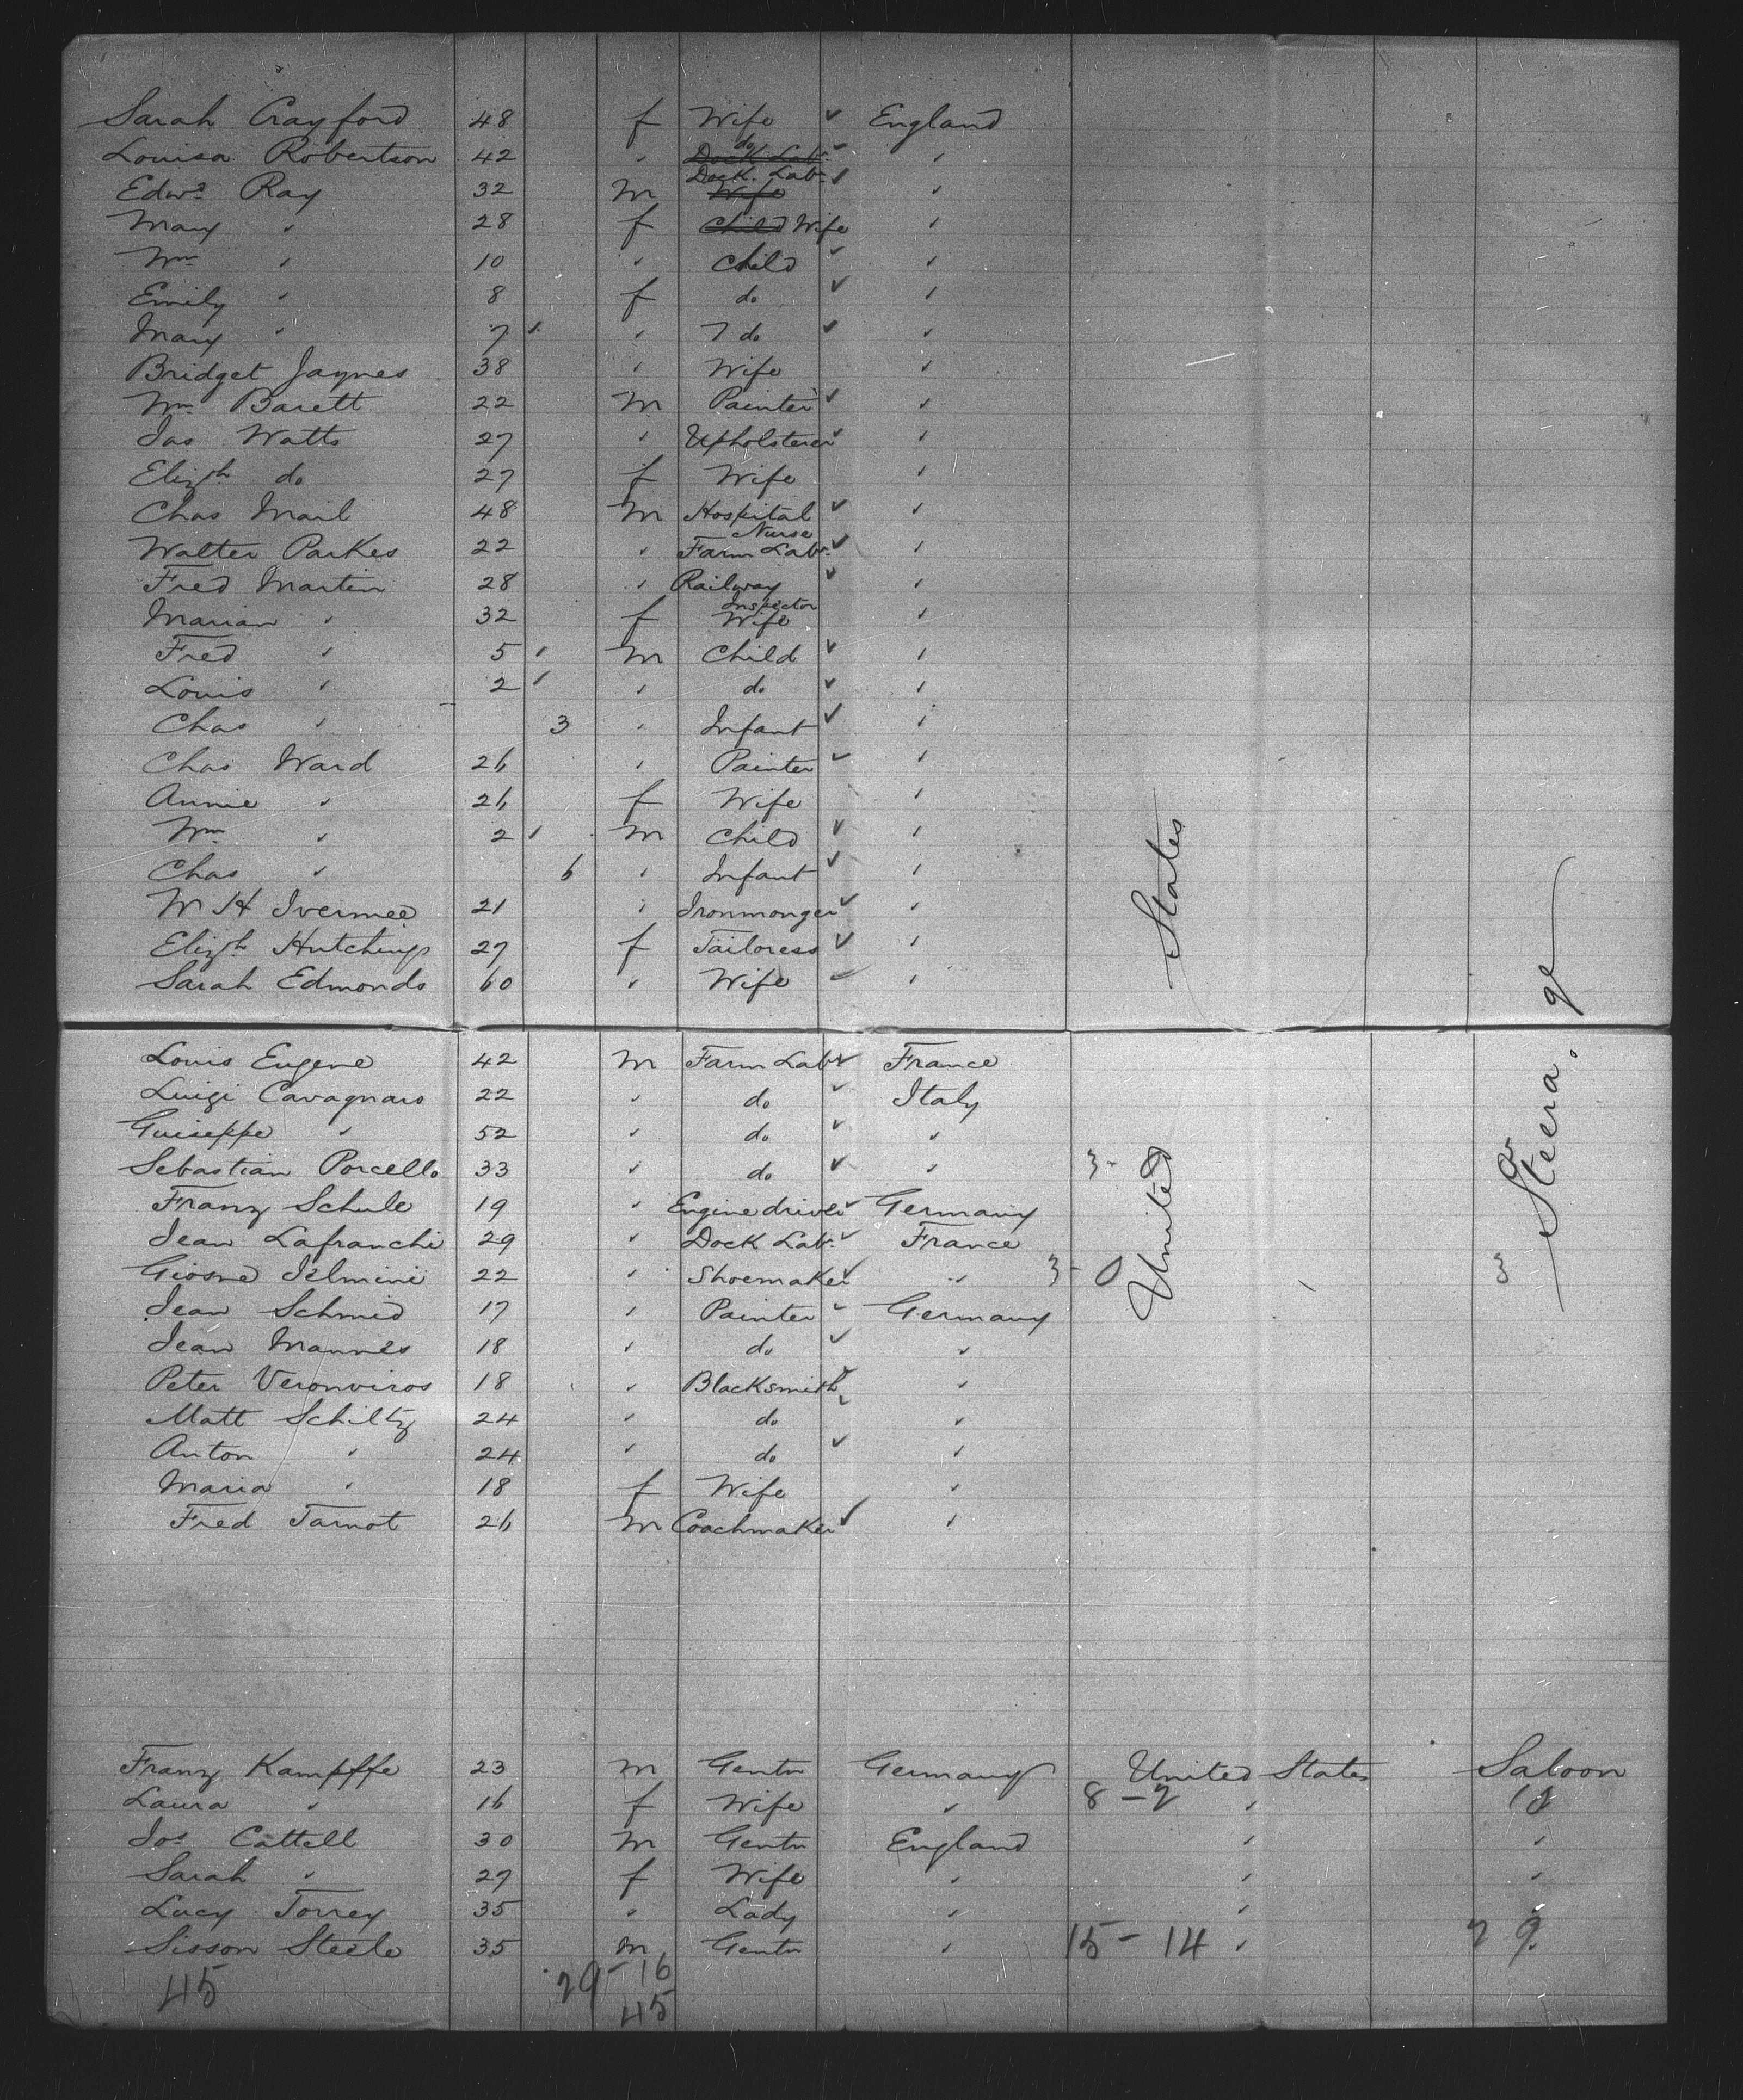 Sarah Crayford 48 f Wife ✓ England
Louisa Robertson 42 " Dock Labr. do ✓ "
Edwd. Ray 32 M Wife Dock. Labr. ✓ "
Mary " 28 f Child Wife "
Wm " 10 " Child ✓ "
Emily " 8 f do ✓ "
Mary " 7 ✓ " 7 do ✓ "
Bridget Jaynes 38 " Wife "
Wm Barett 22 M Painter ✓ "
Jas Watts 27 " Upholsterer ✓ "
Elizth do 27 f Wife "
Chas Mail 48 M Hospital Nurse ✓ "
Walter Parkes 22 " Farm Labr. ✓ "
Fred Martin 28 " Railway Inspector ✓ "
Marian " 32 f Wife "
Fred " 5 ✓ M Child ✓ "
Louis " 2 ✓ " do ✓ "
Chas " 3 " Infant ✓ "
Chas Ward 26 " Painter ✓ "
Annie " 26 f Wife "
Wm " 2 ✓ M Child ✓ "
Chas " 6 " Infant ✓ "
W H Ivermee 21 " Ironmonger ✓ "
Elizth Hutchings 27 f Tailoress ✓ "
Sarah Edmonds 60 " Wife ✓ "
Louis Eugene 42 M Farm Labr ✓ France
Luigi Cavagnaro 22 " do ✓ Italy
Guiseppe " 52 " do ✓ "
Sebastian Porcello 33 " do ✓ " 3-
Franz Schule 19 " Engine driver ✓ Germany
Jean Lafranchi 29 " Dock Labr. ✓ France
Giosne Jelmini 22 " Shoemaker ✓ " 3-0 3
Jean Schmid 17 " Painter ✓ Germany
Jean Mannes 18 " do ✓ "
Peter Veronviros 18 " Blacksmith ✓ "
Matt Schiltz 24 " do ✓ "
Anton " 24 " do ✓ "
Maria " 18 f Wife "
Fred Tarnot 26 M Coachmaker ✓ "
United States
Steerage
Franz Kampffe 23 M Gentn Germany United States Saloon
Laura " 16 f Wife " 8-2 "
Jos Cattell 30 M Gentn England " "
Sarah " 27 f Wife " " "
Lucy Torrey 35 " Lady " " "
Sisson Steele 35 M Gentn " 15-14 " 29
45 29-16
45